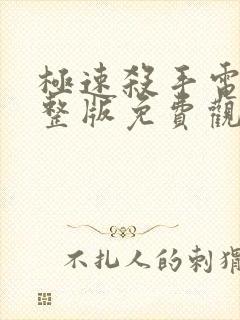 極速殺手電
整版免費觀
不扎人的刺猬